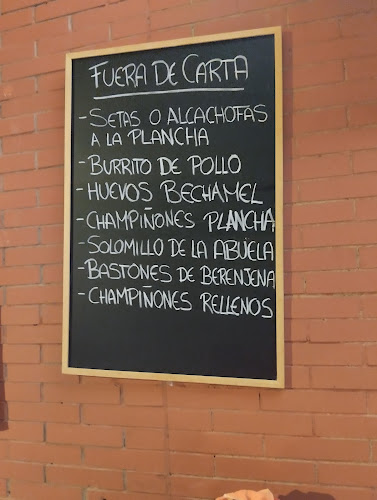 FUERA DE CARTA
- SETAS O ALCACHOFAS
A LA PLANCHA
- BURRITO DE POLLO
- HUEVOS BECHAMEL
- CHAMPIÑONES PLANCHA
- SOLOMILLO DE LA ABUELA
- BASTONES DE BERENJENA
- CHAMPIÑONES RELLENOS